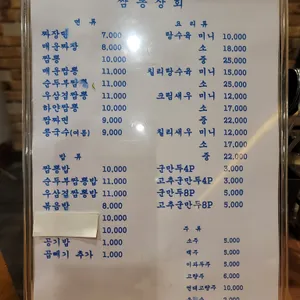 짬뽕상회
면 류
짜장면 7,000
매운짜장 8,000
짬뽕 10,000
매운짬뽕 11,000
순두부짬뽕 11,000
우삼겹짬뽕 11,000
하얀짬뽕 10,000
짬짜면 9,000
콩국수(여름) 9,000
밥 류
짬뽕밥 10,000
순두부짬뽕밥 11,000
우삼겹짬뽕밥 11,000
볶음밥 8,000
10,000
10,000
공기밥 1,000
곱빼기 추가 1,000
요 리 류
탕수육 미니 10,000
소 18,000
중 25,000
칠리탕수육 미니 15,000
중 25,000
크림새우 미니 12,000
소 17,000
중 22,000
칠리새우 미니 12,000
소 17,000
중 22,000
군만두4P 3,000
고추군만두4P 3,000
군만두8P 5,000
고추군만두8P 5,000
주 류
소주 5,000
맥주 5,000
이과두주 5,000
고량주 6,000
연태고량주 10,000